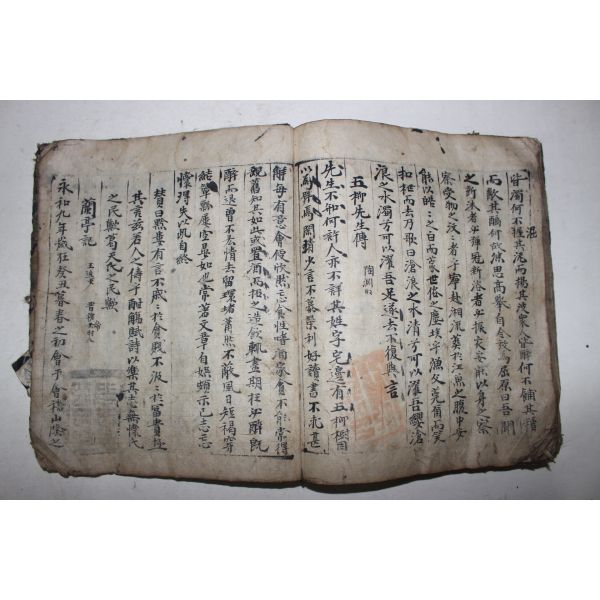 皆濁何不淈其泥而揚其波衆人皆醉何不餔其糟
而歠其醨何故深思高擧自令放爲屈原曰吾聞
之新沐者必彈冠新浴者必振衣安能以身之察
察受物之汶〻者乎寧赴湘流葬於江魚之腹中安
能以皓〻之白而蒙世俗之塵埃乎漁父莞爾而笑
和枻而去乃歌曰滄浪之水淸兮可以濯吾纓滄
浪之水濁兮可以濯吾足遂去不復與言
五柳先生傳
陶淵明
先生不知何許人亦不詳其姓字宅邊有五柳樹因
以爲號焉閑靖少言不慕榮利好讀書不求甚
解每有意會便欣然忘食性嗜酒家貧不能常得
親舊知其如此或置酒而招之造飮輒盡期在必醉旣
醉而退曾不吝情去留環堵蕭然不蔽風日短褐穿
結簞瓢屢空晏如也常著文章自娛頗示己志忘
懷得失以此自終
贊曰黔婁有言不戚〻於貧賤不汲〻於富貴極
其言玆若人之儔乎酣觴賦詩以樂其志無懷氏
之民歟葛天氏之民歟
蘭亭記
王逸少
永和九年歲在癸丑暮春之初會于會稽山陰之